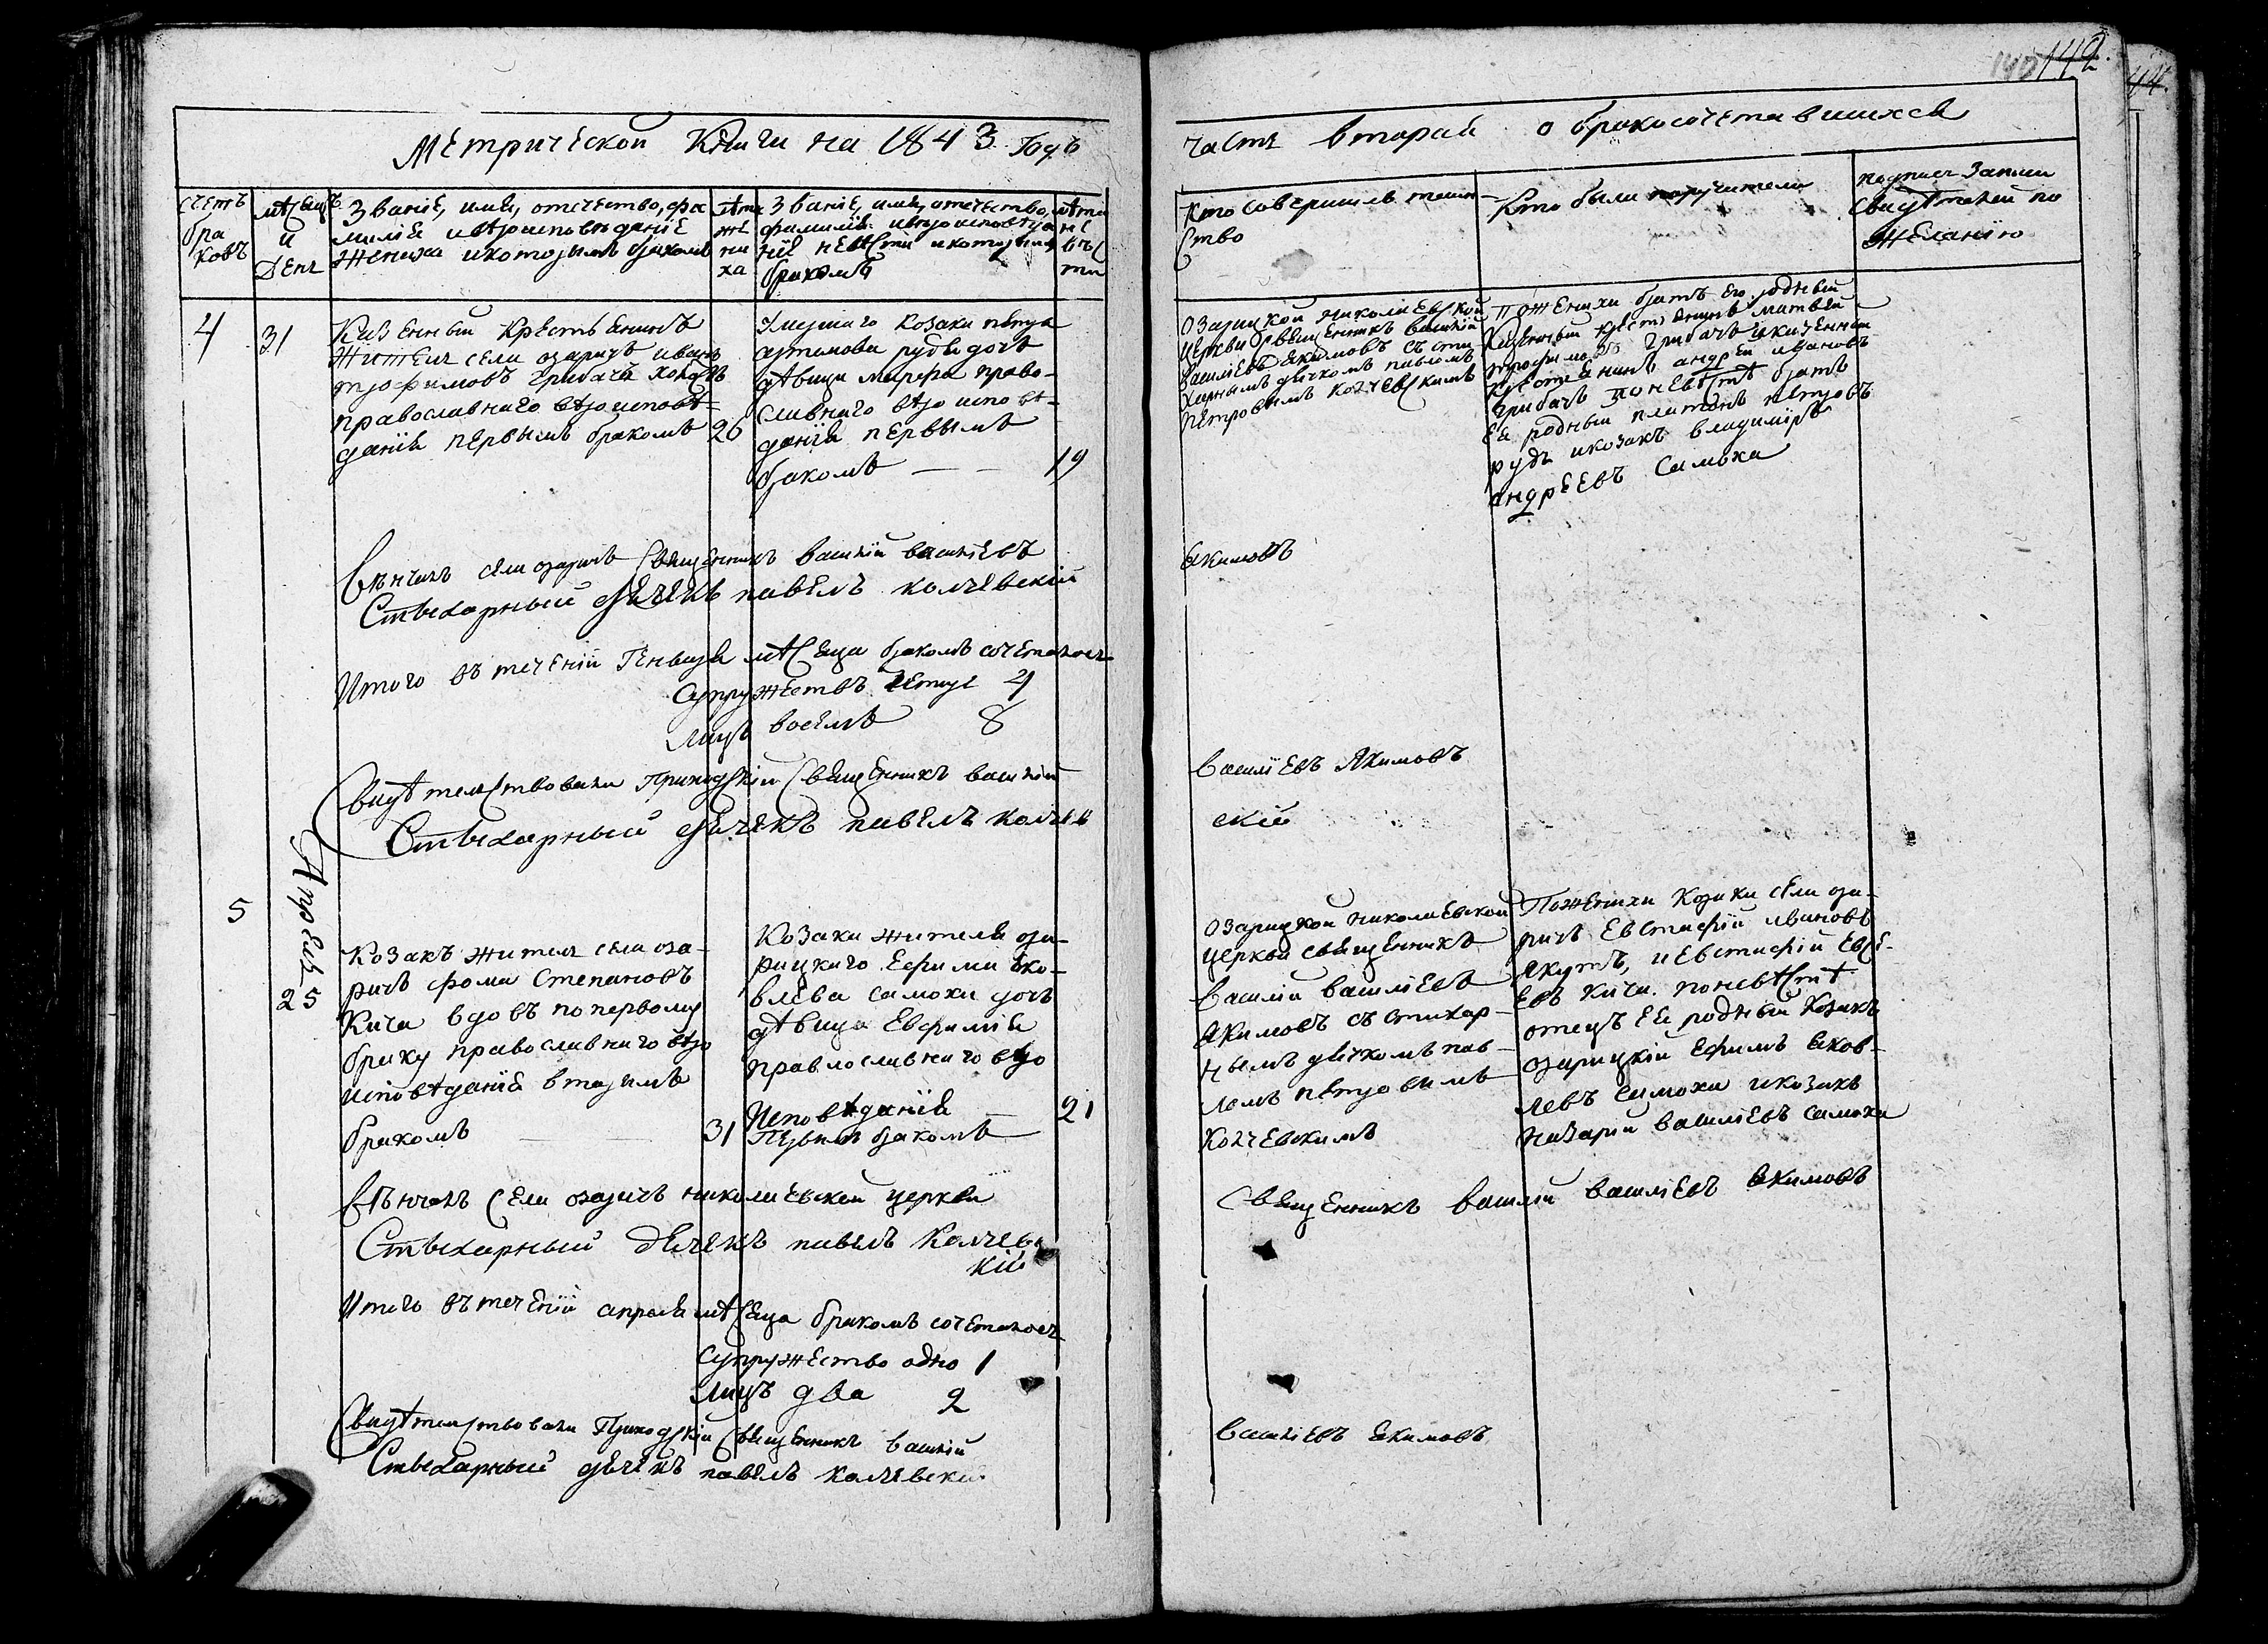 142.
140
44.
Метрической Книги на 1843 Годъ
часть вторая о бракосочетавшихся
счетъ
бра
ковъ
мѣсяцъ
и
День
Званіе, имя, отчество, фа
милія и вѣроисповѣданіе
жениха и которымъ бракомъ
лѣта
же
ни
ха
Званіе, имя, отчество,
фамилія и вѣроисповѣда
ніе невѣсты и которымъ
бракомъ
лѣта
не
вѣс
ты
Кто совершилъ таин
ство
Кто были поручители
подписи Записи
свидѣтелей по
желанію
4
31
Казенный Крестьянинъ
Житель села озаричъ иванъ
трофимовъ грибачъ холостъ
православнаго вѣроисповѣ-
данія первымъ бракомъ
26
Умершаго козака петра
артимова рудя дочь
дѣвица марфа право-
славнаго вѣроисповѣ-
данія первымъ
бракомъ
19
Озарицкой Николаевской
церкви Священникъ василій
василіевъ Якимовъ съ сти
харнымъ дячкомъ павломъ
петровымъ колчевскимъ
По женихи братъ его родный
Казенный крестьянинъ матвей
трофимовъ грибачъ и казенный
крестьянинъ андрей ивановъ
грибачъ по невѣстѣ братъ
ея родный платонъ петровъ
рудь и козакъ владиміръ
андреевъ Самоха
Вѣнчалъ села озаричъ Священникъ василій василіевъ
Якимовъ
Стыхарный дячекъ павелъ колчевскій
Итого въ теченіи Генваря мѣсяца бракомъ сочеталось
Супружествъ четыре 4
Лицъ восемъ 8
Свидѣтелствовали Приходскій Священникъ василій
Василіевъ Якимовъ
Стыхарный дячекъ павелъ колчев
скій
Апрель
5
25
Козакъ житель села оза-
ричъ фома Степановъ
Кича вдовъ по первому
браку православнаго вѣро
исповѣданія вторымъ
бракомъ
31
Козака жителя оза-
рицкаго Ефима яко-
влева самохи дочь
дѣвица Евфимія
православнаго вѣро
Исповѣданія
Первымъ бракомъ
21
Озарицкой николаевской
церкви священникъ
Василій василіевъ
Якимовъ съ стихар-
нымъ дячкомъ пав-
ломъ петровымъ
Колчевскимъ
По женихи Козаки села оза-
ричъ Евстафій ивановъ
якутъ, и Евстафій Евсе-
евъ Кича. по невѣстѣ
отецъ ея родный Козакъ
озарицкій Ефимъ яков-
левъ самоха и козакъ
Назарій василіевъ самоха
Вѣнчалъ Села озаричъ николаевской церкви
Священникъ василій василіевъ Якимовъ
Стыхарный дячекъ павелъ Колчевс
кій
Итого въ теченіи апреля мѣсяца бракомъ сочеталось
Супружество одно 1
Лицъ два 2
Свидѣтелствовали Приходскій Священникъ василій
василіевъ якимовъ
Стыхарный дячекъ павелъ колчевскій